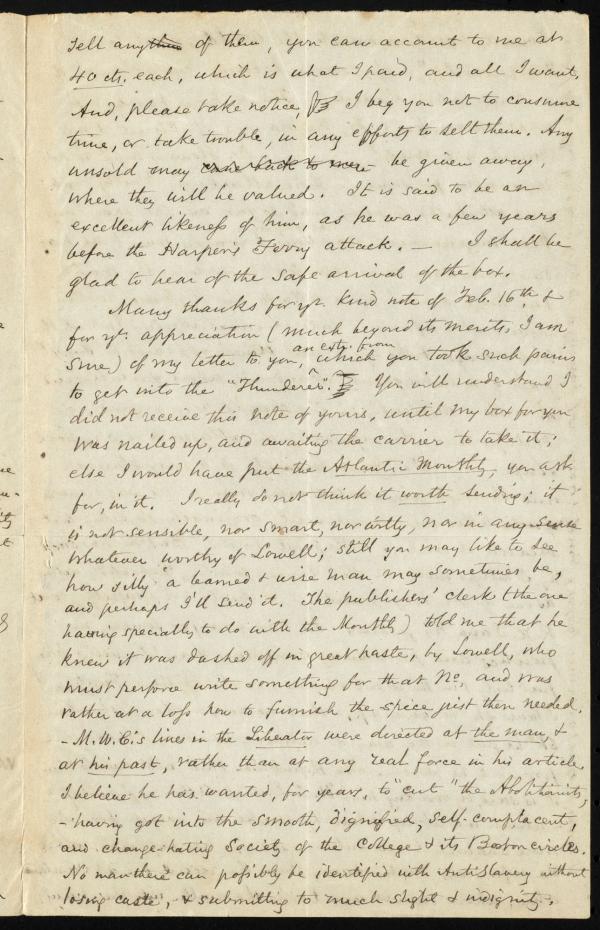 sell any of them, you can account to me at
40 cts. each, which is what I paid, and all I want.
And, please take notice, I beg you not to consume
time, or take trouble, in any efforts to sell them. Any
unsold may come back to me be given away,
where they will be valued. It is said to be an
excellent likeness of him, as he was a few years
before the Harper's Ferry attack. — I shall be
glad to hear of the safe arrival of the box.
Many thanks for yr. kind note of Feb. 16th &
for yr. appreciation (much beyond its merits, I am
sure) of my letter to you, an extr. from which you took such pains
to get into the "Thunderer". You will understand I
did not receive this note of yours, until my box for you
was nailed up, and awaiting the carrier to take it;
else I would have put the Atlantic Monthly, you ask
for, in it. I really do not think it worth sending; it
is not sensible, nor smart, nor witty, nor in any sense
whatever worthy of Lowell; still you may like to see
how silly a learned & wise man may sometimes be,
and perhaps I'll send it. The publishers' clerk (the one
having specially to do with the Monthly) told me that he
knew it was dashed off in great haste, by Lowell, who
must perforce write something for that No, and was
rather at a loss how to furnish the spice just then needed.
- M. W. C.'s lines in the Liberator were directed at the man, &
at his past, rather than at any real force in his article.
I believe he has wanted, for years, to "cut" the Abolitionists,
- having got into the smooth, dignified, self-complacent,
and change-hating Society of the College & its Boston circles.
No man there can possibly be identified with Antislavery without
losing caste, & submitting to much slight & indignity.